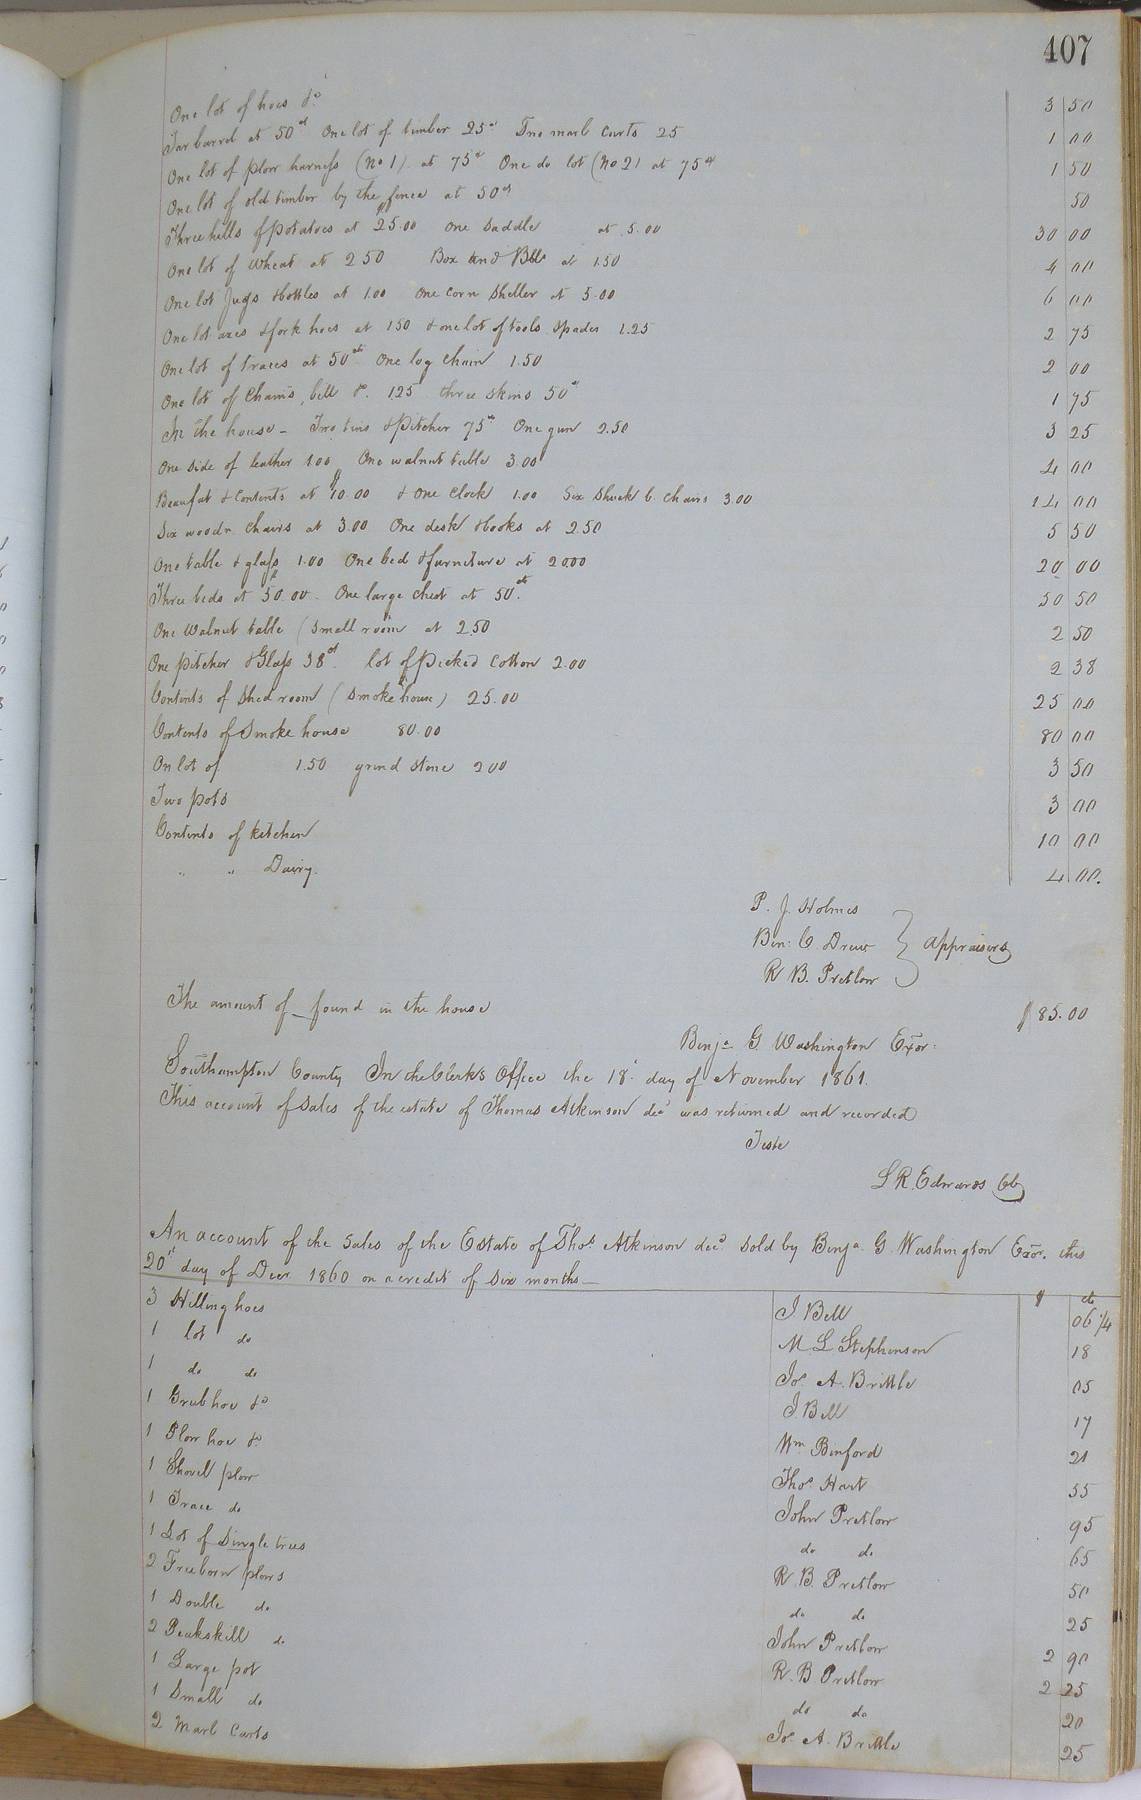 407
One lot of hoes &c 3 50
Tar barrel at 50cts One lot of timber 25cts Two marl carts 25 1 00
One lot of plow harness (No 1) at 75cts One do lot (No 2) at 75cts 1 50
One lot of old timber by the fence at 50cts 50
Three hills of potatoes at $25.00 one saddle at 5.00 30 00
One lot of wheat at 2 50 Box and Bbls at 1.50 4 00
One lot Jugs & bottles at 1.00 One corn sheller at 5.00 6 00
One lot axes & fork hoes at 150 & one lot of tools spades 1.25 2 75
One lot of traces at 50cts One log chain 1.50 2 00
One lot of Chains, bell &c. 125 three skins 50cts 1 75
In the house - Two tins & Pitcher 75cts One gun 2.50 3 25
One side of leather 1.00 One walnut table 3.00 4 00
Beaufat & contents at $10.00 & one Clock 1.00 Six Shuck b. chairs 3.00 14 00
Six woodn chairs at 3.00 One desk & books at 2.50 5 50
One table & glass 1.00 One bed & furniture at 20.00 20 00
Three beds at $50.00. One large chest at 50cts. 50 50
One walnut table (small room at 2.50 2 50
One pitcher & Glass 38cts. lot of picked cotton 2.00 2 38
Contents of shed room (smoke house) 25.00 25 00
Contents of Smoke house 80.00 80 00
On lot of 1.50 grind stone 2 00 3 50
Two pots 3 00
Contents of kitchen 10 00
" " Dairy. 4 00.
P. J. Holmes
Ben: C. Drew } appraisers
R B. Pretlow
The amount of _ found in the house $85.00
Benja G Washington Exor:
Southampton County In the Clerks Office the 18 day of November 1861.
This account of sales of the estate of Thomas Atkinson decd was returned and recorded
Teste
L R. Edwards Clk
An account of the sales of the Estate of Thos Atkinson decd sold by Benja G. Washington Exor. this
20th day of Decr 1860 on a credit of six months— $ cts
3 Hilling hoes J. Bell 06 1/4
1 lot do M. L Stephenson 18
1 do do Jos. A. Brittle 05
1 Grub hoe &c J. Bell 17
1 Plow hoe &c Wm Binford 21
1 Shovel plow Thos. Hart 55
1 Trace do John Pretlow 95
1 Lot of Single trees do do 65
2 Freeborn plows R. B. Pretlow 50
1 Double do do do 25
2 Peakskill do John Pretlow 2 90
1 Large pot R. B Pretlow 2 25
1 Small do do do 20
2 Marl Carts Jos. A. Brittle 25